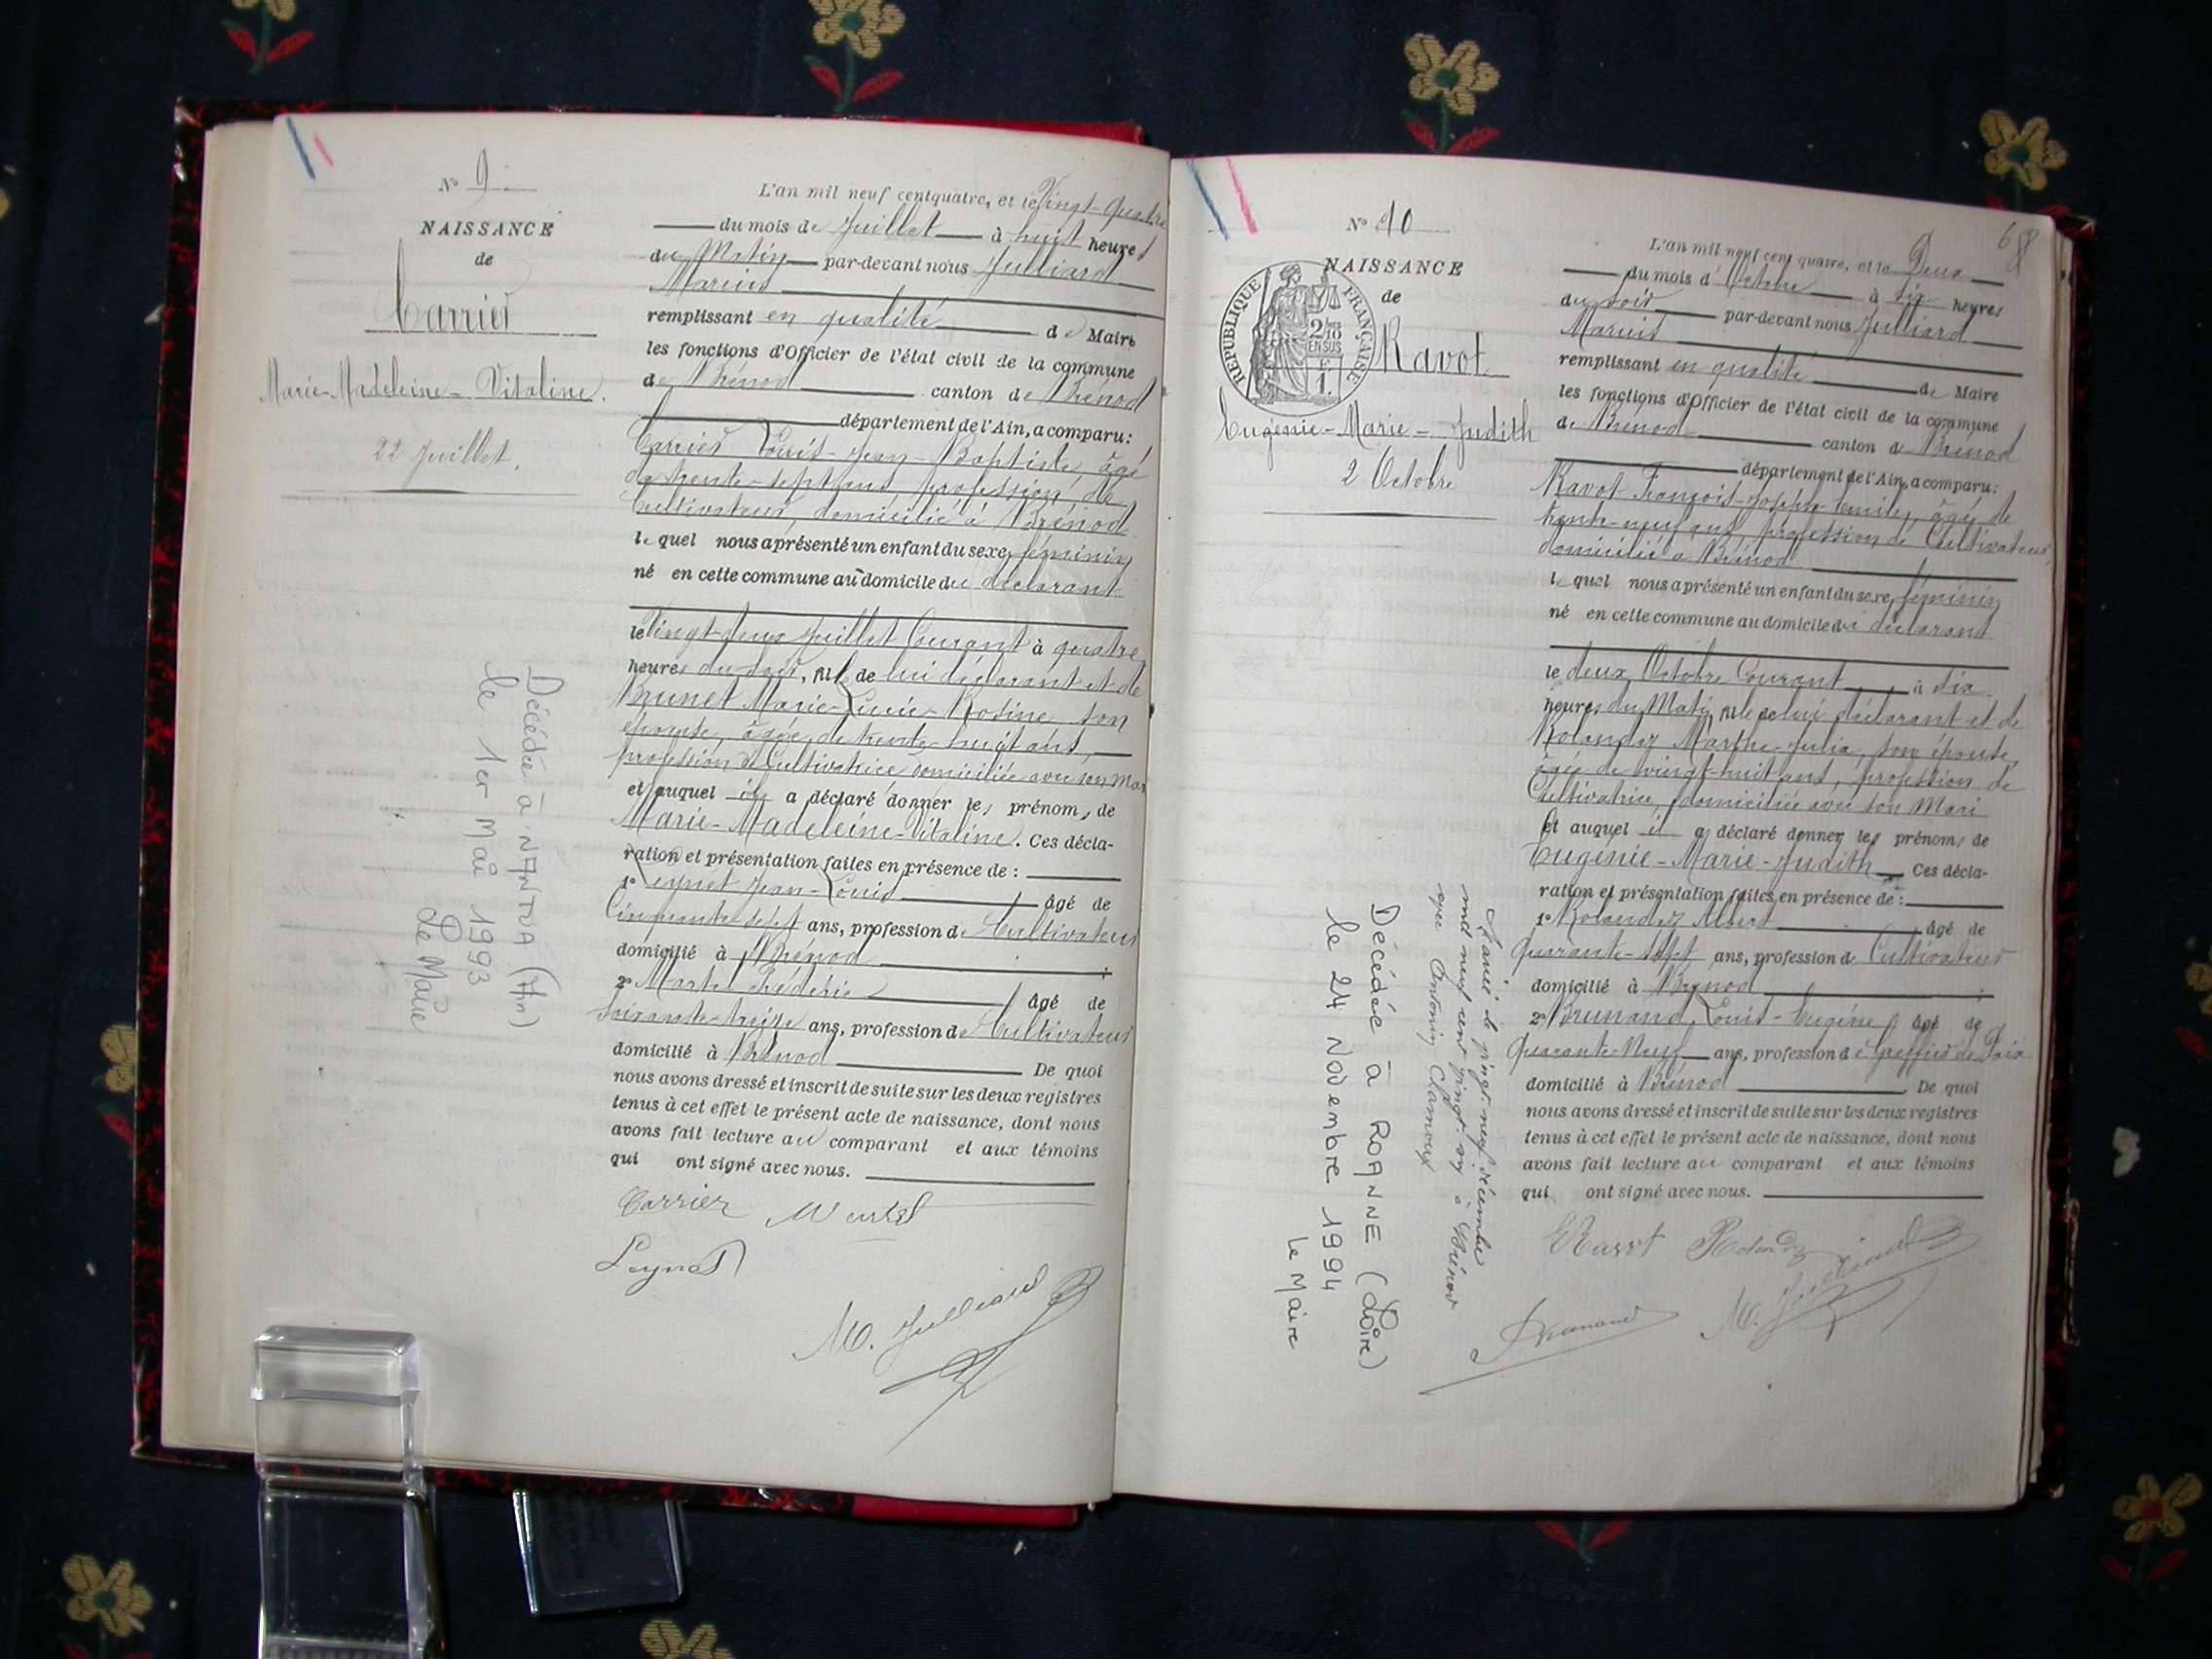 N° 9
NAISSANCE
de
Carrier
Marie-Madeleine-Vitaline.
22 Juillet.
L'an mil neuf cent quatre, et le Vingt-Quatre
du mois de Juillet à huit heures
du Matin par-devant nous Julliard
Marius
remplissant en qualité de Maire
les fonctions d'Officier de l'état civil de la commune
de Brénod canton de Brénod
département de l'Ain, a comparu:
Carrier Louis-Jean-Baptiste, âgé
de trente-sept ans, profession de
Cultivateur, domicilié à Brénod
lequel nous a présenté un enfant du sexe féminin
né en cette commune au domicile du déclarant
le Vingt-deux Juillet Courant à quatre
heures du soir, fille de lui déclarant et de
Brunet Marie-Lucie-Rosine son
épouse, âgée de trente-huit ans,
profession de Cultivatrice domiciliée avec son Mari
et auquel il a déclaré donner les prénoms de
Marie-Madeleine-Vitaline. Ces décla-
ration et présentation faites en présence de :
1° Leynet Jean-Louis âgé de
Cinquante-sept ans, profession de Cultivateur
domicilié à Brénod ;
2° Martel Frédéric âgé de
soixante-treize ans, profession de Cultivateur
domicilié à Brénod De quoi
nous avons dressé et inscrit de suite sur les deux registres
tenus à cet effet le présent acte de naissance, dont nous
avons fait lecture au comparant et aux témoins
qui ont signé avec nous.
Carrier Martel
Leynet
M. Julliard
Décédée à NANTUA (Ain)
le 1er Mai 1993
Le Maire
68
N° 10
NAISSANCE
de
RÉPUBLIQUE FRANÇAISE
2/10
EN SUS
1.
Ravot
Eugénie-Marie-Judith
2 Octobre
L'an mil neuf cent quatre, et le Deux
du mois d'Octobre à six heures
du soir par-devant nous Julliard
Marius
remplissant en qualité de Maire
les fonctions d'Officier de l'état civil de la commune
de Brénod canton de Brénod
département de l'Ain, a comparu:
Ravot François-Joseph-Emile, âgé de
trente-neuf ans, profession de Cultivateur
domicilié à Brénod
lequel nous a présenté un enfant du sexe féminin
né en cette commune au domicile du déclarant
le deux Octobre Courant à dix
heures du Matin, fille de lui déclarant et de
Rolandez Marthe-Julia, son épouse,
âgée de vingt-huit ans, profession de
Cultivatrice, domiciliée avec son Mari
et auquel il a déclaré donner les prénoms de
Eugénie-Marie-Judith Ces décla-
ration et présentation faites en présence de :
1° Rolandez Albert âgé de
Quarante-sept ans, profession de Cultivateur
domicilié à Brénod ;
2° Brunand Louis-Eugène âgé de
Quarante-Neuf ans, profession de Greffier de Paix
domicilié à Brénod De quoi
nous avons dressé et inscrit de suite sur les deux registres
tenus à cet effet le présent acte de naissance, dont nous
avons fait lecture au comparant et aux témoins
qui ont signé avec nous.
E Ravot Rolandez
Brunand M. Julliard
Mariée le vingt-neuf décembre
mil neuf cent vingt-six à Brénod
avec Antonin
Décédée à ROANNE (Loire)
le 24 Novembre 1994
Le Maire